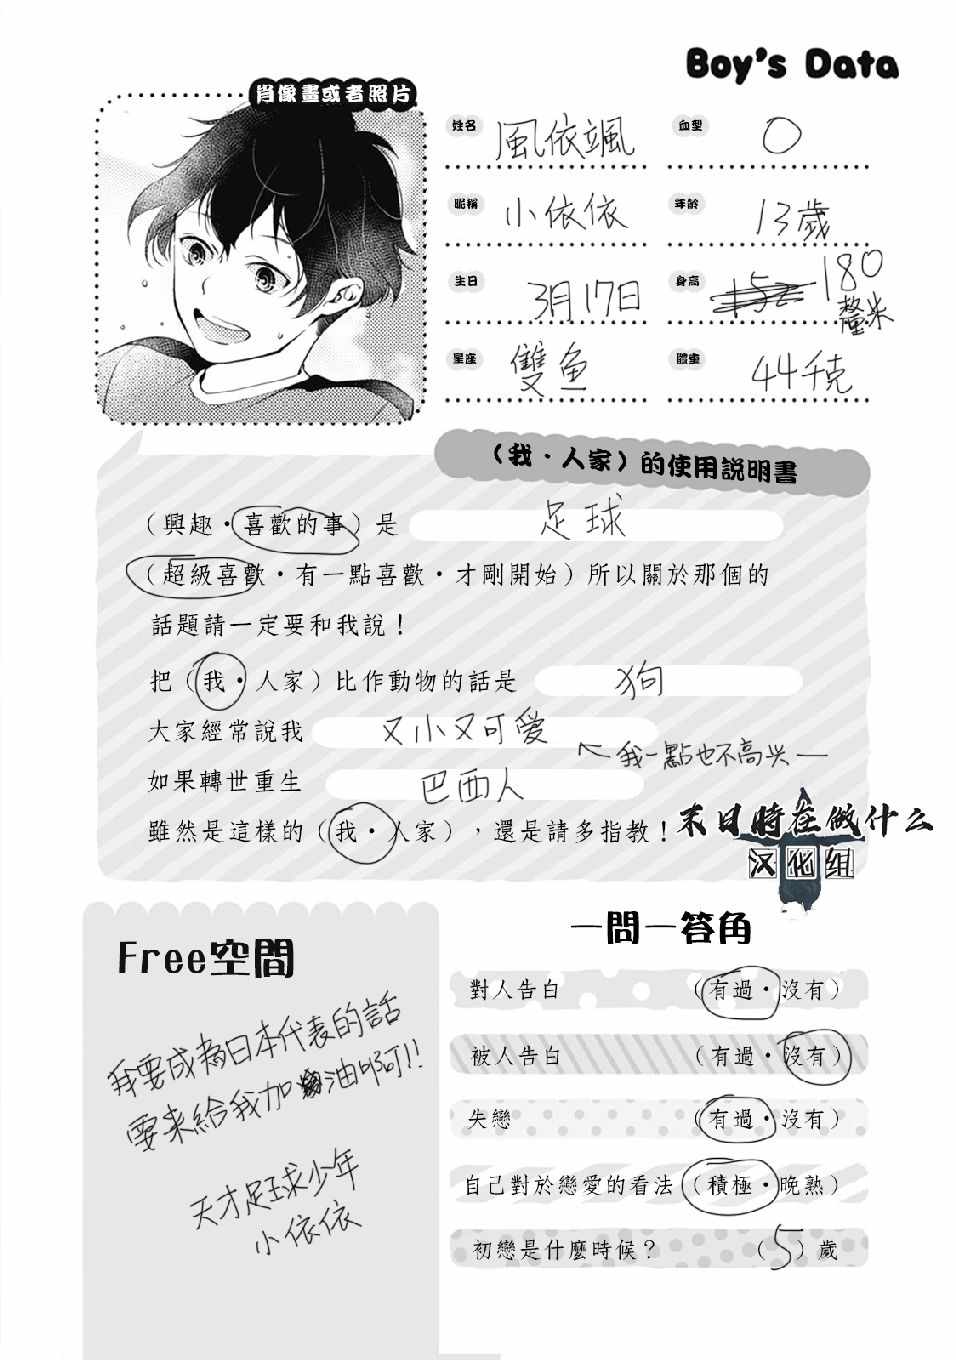 Boy's Data
肖像畫或者照片
姓名 風依颯
血型 O
昵稱 小依依
年龄 13歲
生日 3月17日
身高 152 180釐米
星座 雙魚
體重 44千克
（我・人家）的使用說明書
（興趣・喜歡的事）是 足球
（超級喜歡・有一點喜歡・才剛開始）所以關於那個的
話題請一定要和我說！
把（我・人家）比作動物的話是 狗
大家經常說我 又小又可愛
↖我一點也不高兴
如果轉世重生 巴西人
雖然是這樣的（我・人家），還是請多指教！
末日時在做什么
汉化组
Free空間
我要成為日本代表的話
要来給我加油啊!!
天才足球少年
小依依
一問一答角
對人告白 （有過・沒有）
被人告白 （有過・沒有）
失戀 （有過・沒有）
自己對於戀愛的看法（積極・晚熟）
初戀是什麼時候？ （5）歲